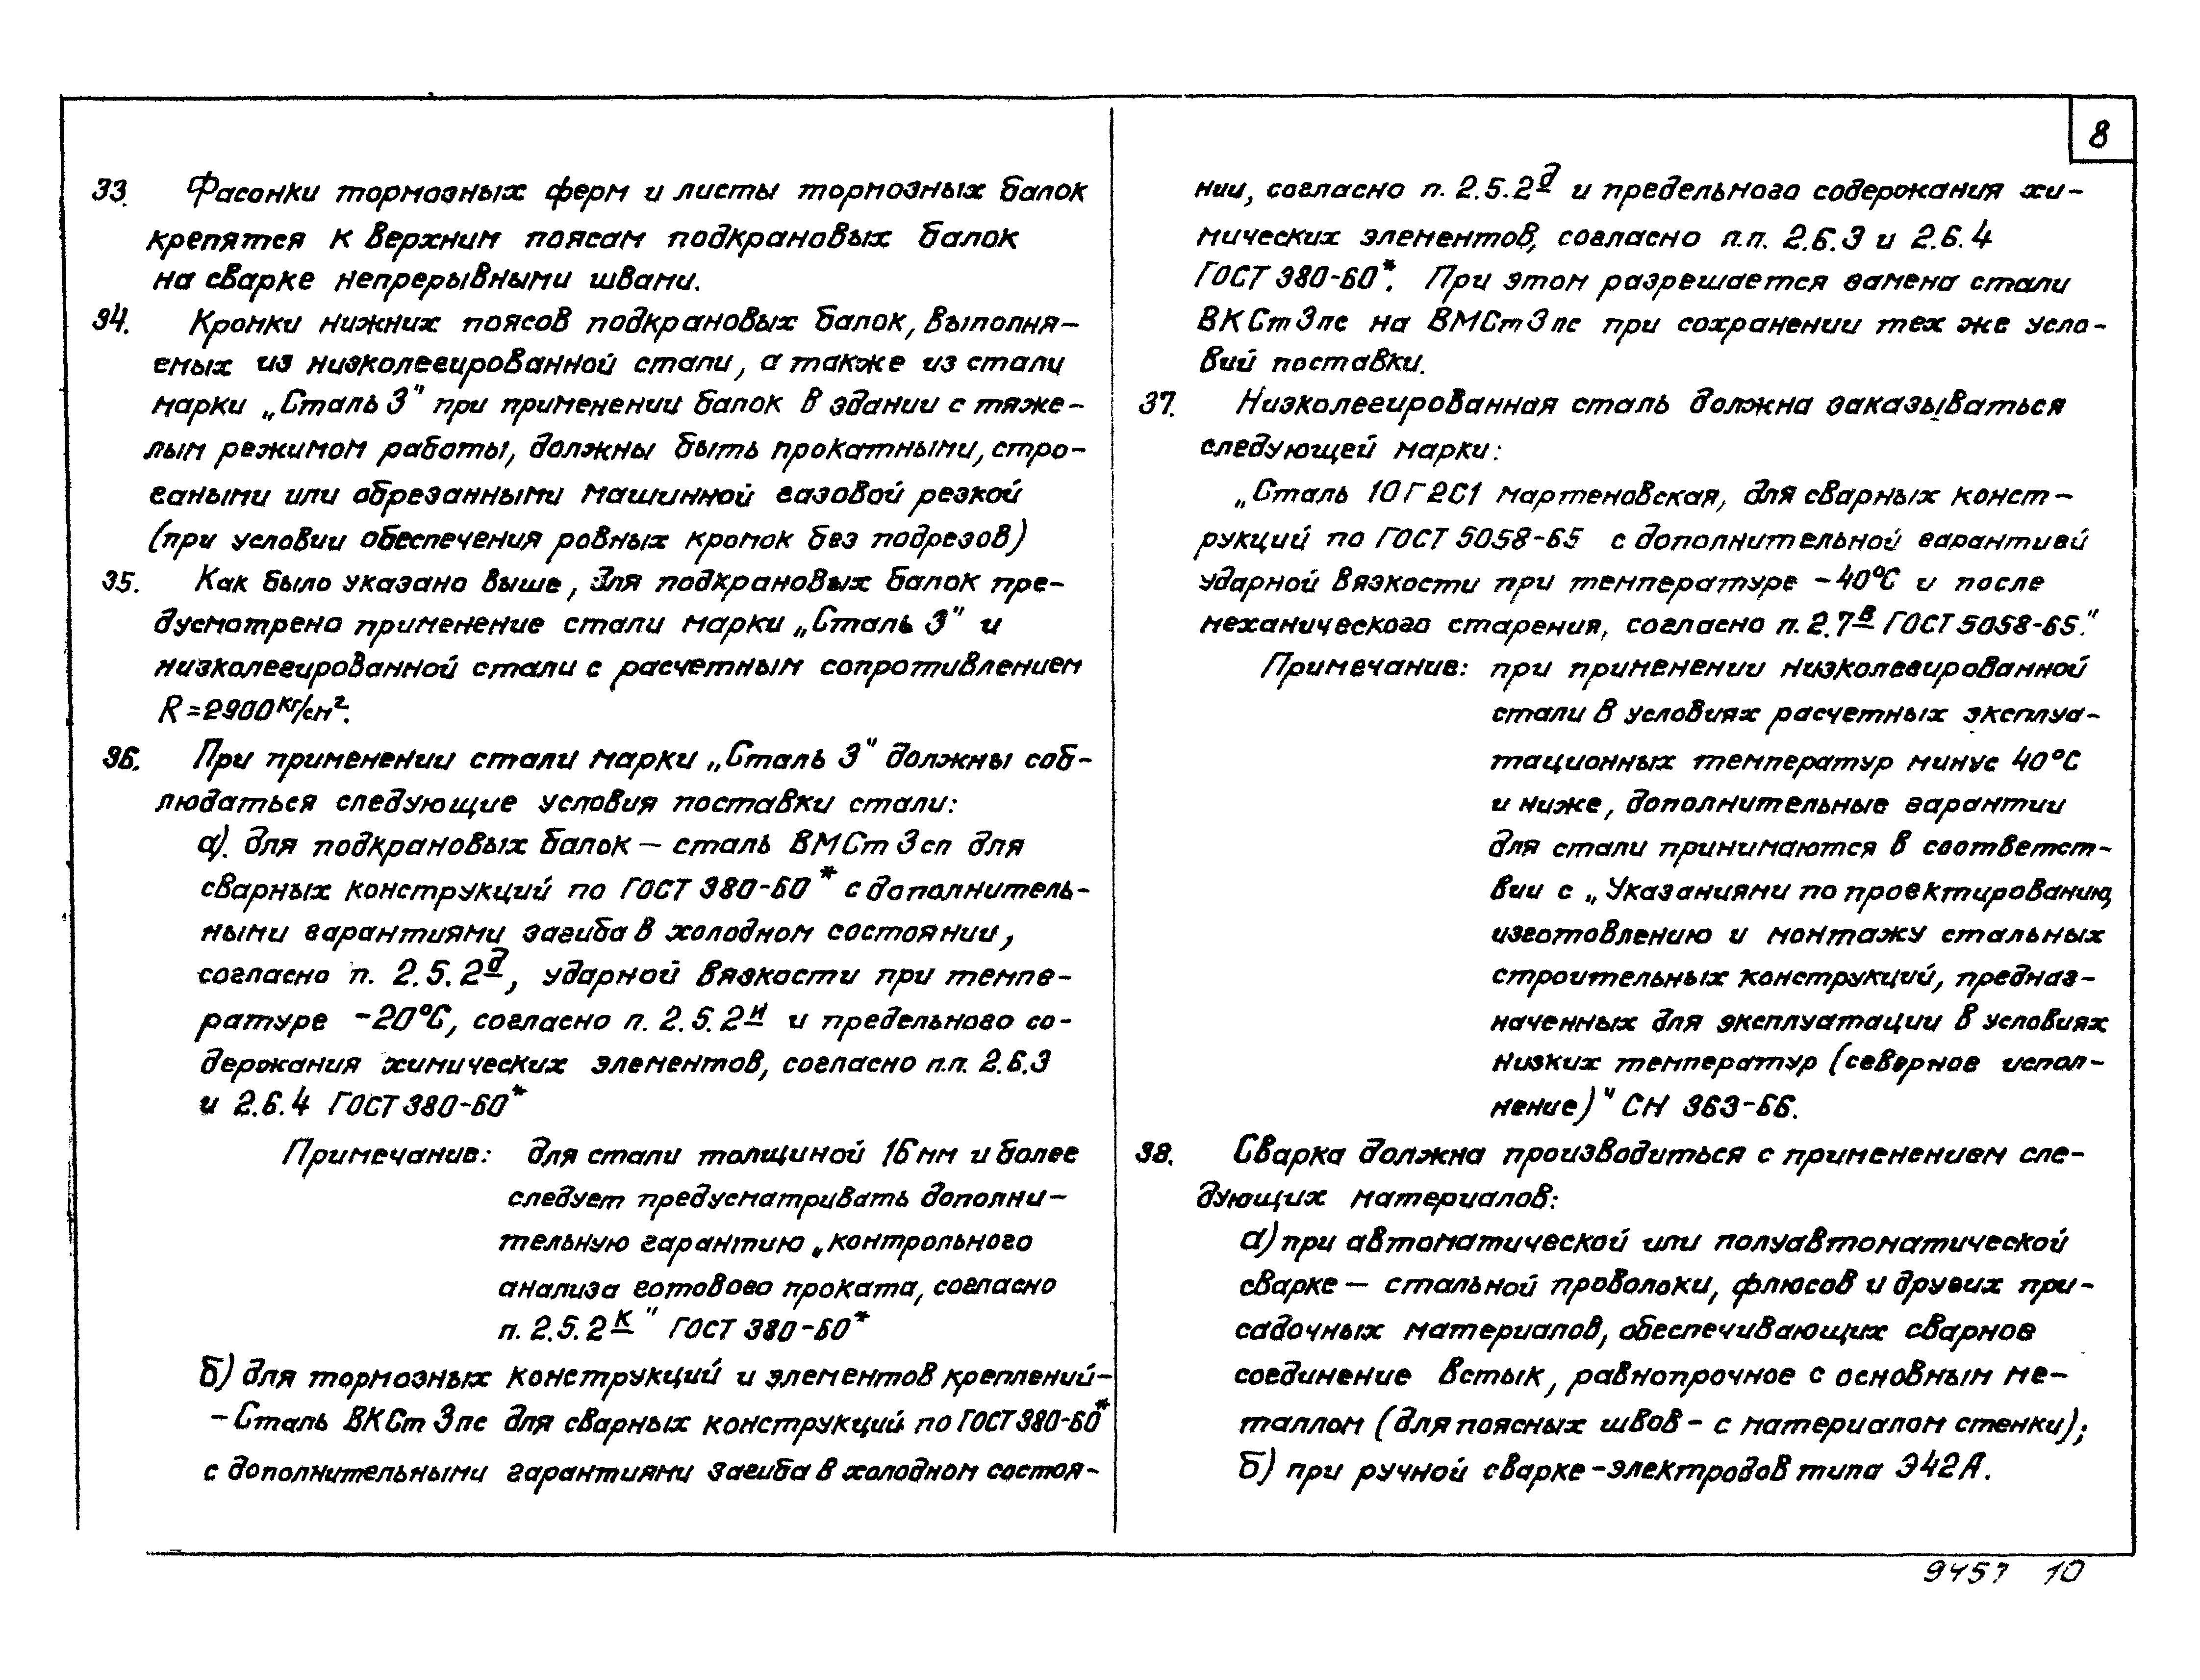 8
33. Фасонки тормозных ферм и листы тормозных балок
крепятся к верхним поясам подкрановых балок
на сварке непрерывными швами.
34. Кромки нижних поясов подкрановых балок, выполня-
емых из низколегированной стали, а также из стали
марки „Сталь 3" при применении балок в здании с тяже-
лым режимом работы, должны быть прокатными, стро-
гаными или обрезанными машинной газовой резкой
(при условии обеспечения ровных кромок без подрезов)
35. Как было указано выше, для подкрановых балок пре-
дусмотрено применение стали марки „Сталь 3" и
низколегированной стали с расчетным сопротивлением
R=2900 кг/см².
36. При применении стали марки „Сталь 3" должны соб-
людаться следующие условия поставки стали:
а). для подкрановых балок — сталь ВМСт3сп для
сварных конструкций по ГОСТ 380-60* с дополнитель-
ными гарантиями загиба в холодном состоянии,
согласно п. 2.5.2д, ударной вязкости при темпе-
ратуре -20°С, согласно п. 2.5.2и и предельного со-
держания химических элементов, согласно п.п. 2.6.3
и 2.6.4 ГОСТ 380-60*
Примечание: для стали толщиной 16мм и более
следует предусматривать дополни-
тельную гарантию „контрольного
анализа готового проката, согласно
п. 2.5.2к" ГОСТ 380-60*
б) для тормозных конструкций и элементов креплений-
-Сталь ВКСт3пс для сварных конструкций по ГОСТ 380-60*
с дополнительными гарантиями загиба в холодном состоя-
нии, согласно п. 2.5.2д и предельного содержания хи-
мических элементов, согласно п.п. 2.6.3 и 2.6.4
ГОСТ 380-60*. При этом разрешается замена стали
ВКСт3пс на ВМСт3пс при сохранении тех же усло-
вий поставки.
37. Низколегированная сталь должна заказываться
следующей марки:
„Сталь 10Г2С1 мартеновская, для сварных конст-
рукций по ГОСТ 5058-65 с дополнительной гарантией
ударной вязкости при температуре -40°С и после
механического старения, согласно п. 2.7в ГОСТ 5058-65."
Примечание: при применении низколегированной
стали в условиях расчетных эксплуа-
тационных температур минус 40°С
и ниже, дополнительные гарантии
для стали принимаются в соответст-
вии с „Указаниями по проектированию,
изготовлению и монтажу стальных
строительных конструкций, предназ-
наченных для эксплуатации в условиях
низких температур (северное испол-
нение)" СН 363-66.
38. Сварка должна производиться с применением сле-
дующих материалов:
а) при автоматической или полуавтоматической
сварке — стальной проволоки, флюсов и других при-
садочных материалов, обеспечивающих сварное
соединение встык, равнопрочное с основным ме-
таллом (для поясных швов - с материалом стенки);
б) при ручной сварке-электродов типа Э42А.
9457 10